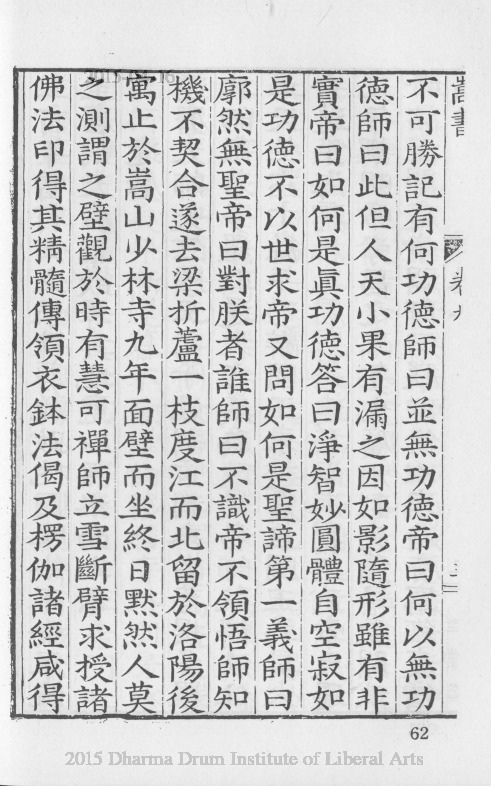 嵩書
卷九
不可勝記有何功德師曰並無功德帝曰何以無功
德師曰此但人天小果有漏之因如影隨形雖有非
實帝曰如何是眞功德答曰淨智妙圓體自空寂如
是功德不以世求帝又問如何是聖諦第一義師曰
廓然無聖帝曰對朕者誰師曰不識帝不領悟師知
機不契合遂去梁折蘆一枝度江而北留於洛陽後
寓止於嵩山少林寺九年面壁而坐終日默然人莫
之測謂之壁觀於時有慧可禪師立雪斷臂求授諸
佛法印得其精髓傳領衣鉢法偈及楞伽諸經咸得
62
2015 Dharma Drum Institute of Liberal Arts